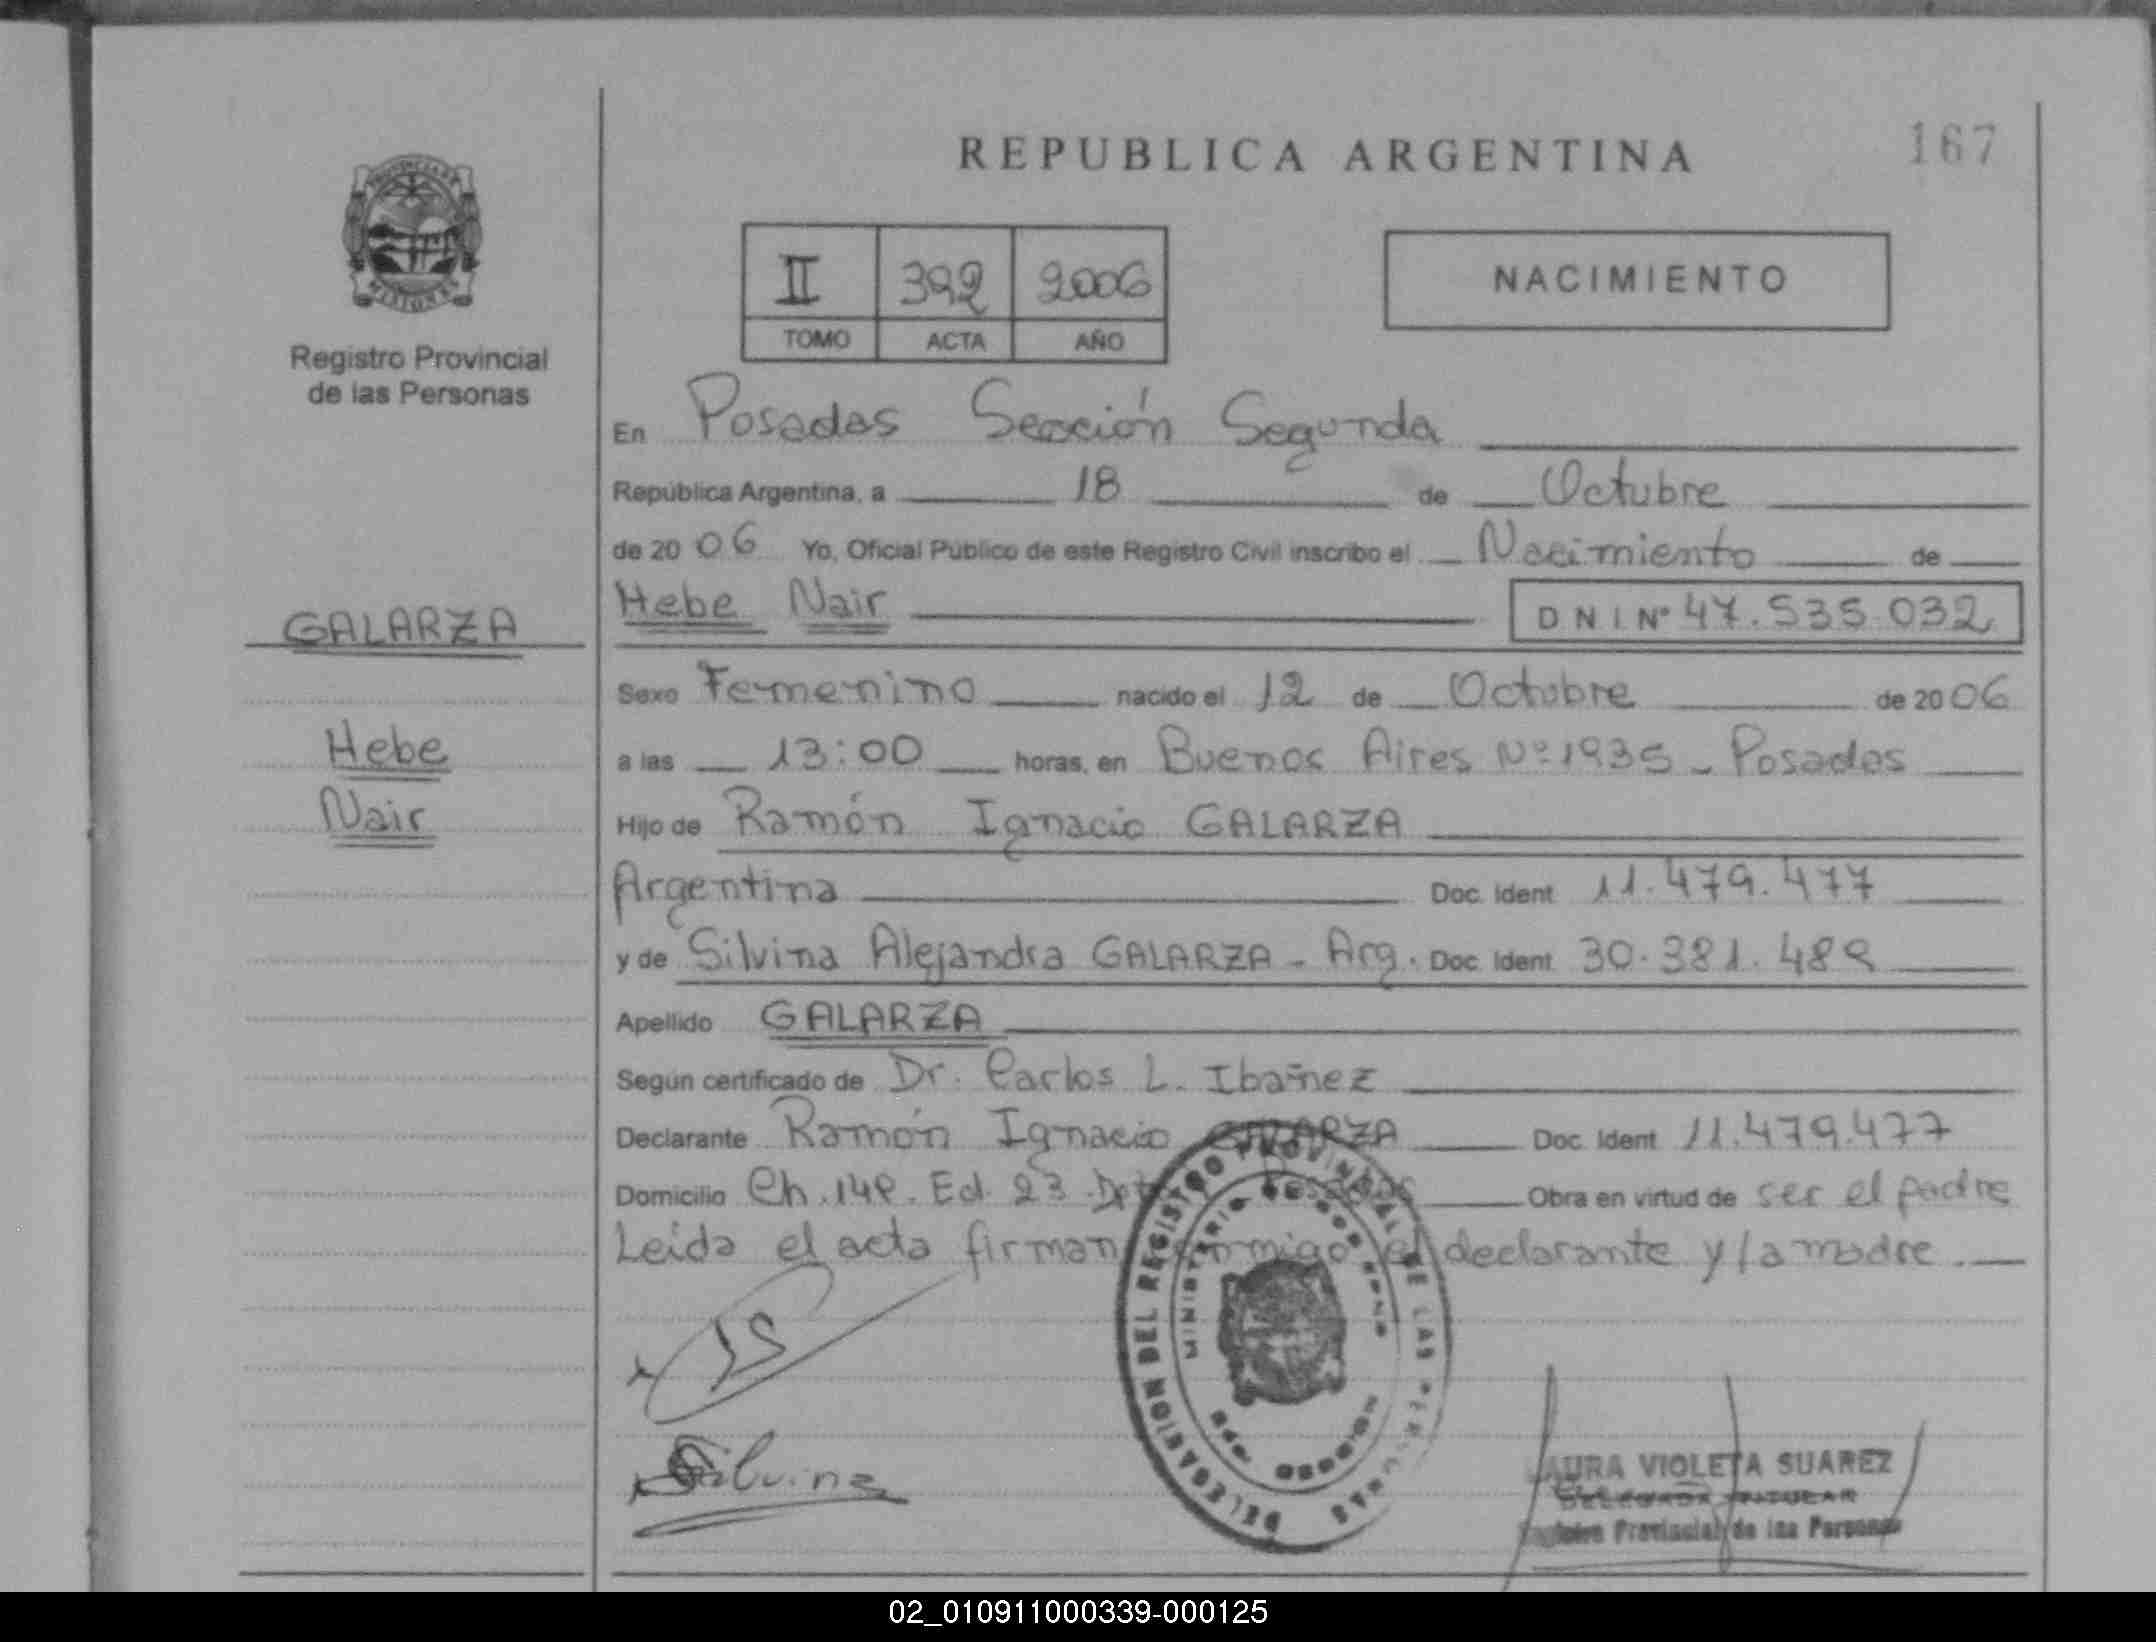 REPUBLICA ARGENTINA
167
PROVINCIA DE
MISIONES
Registro Provincial
de las Personas
II 392 2006
TOMO ACTA AÑO
NACIMIENTO
En Posadas Sección Segunda
República Argentina, a 18 de Octubre
de 20 06 Yo, Oficial Público de este Registro Civil inscribo el Nacimiento de
Hebe Nair DNI Nº 47.535.032
GALARZA
Hebe
Nair
Sexo Femenino nacido el 12 de Octubre de 20 06
a las 13:00 horas, en Buenos Aires Nº 1935 - Posadas
Hijo de Ramón Ignacio GALARZA
Argentina Doc. Ident 11.479.477
y de Silvina Alejandra GALARZA - Arg. Doc. Ident. 30.381.489
Apellido GALARZA
Según certificado de Dr. Carlos L. Ibañez
Declarante Ramón Ignacio GALARZA Doc. Ident 11.479.477
Domicilio Ch. 149. Ed. 23 Obra en virtud de ser el padre
Leída el acta firman conmigo el declarante y la madre.
DELEGACION DEL REGISTRO PROVINCIAL DE LAS PERSONAS
MINISTERIO DE GOBIERNO
Silvina
LAURA VIOLETA SUAREZ
DELEGADA TITULAR
Registro Provincial de las Personas
02_010911000339-000125